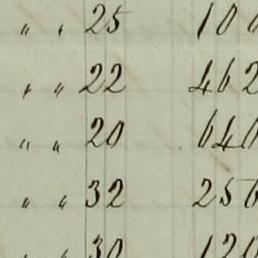 " " 25 100
" " 22 462
" " 20 640
" " 32 256
" " 30 120